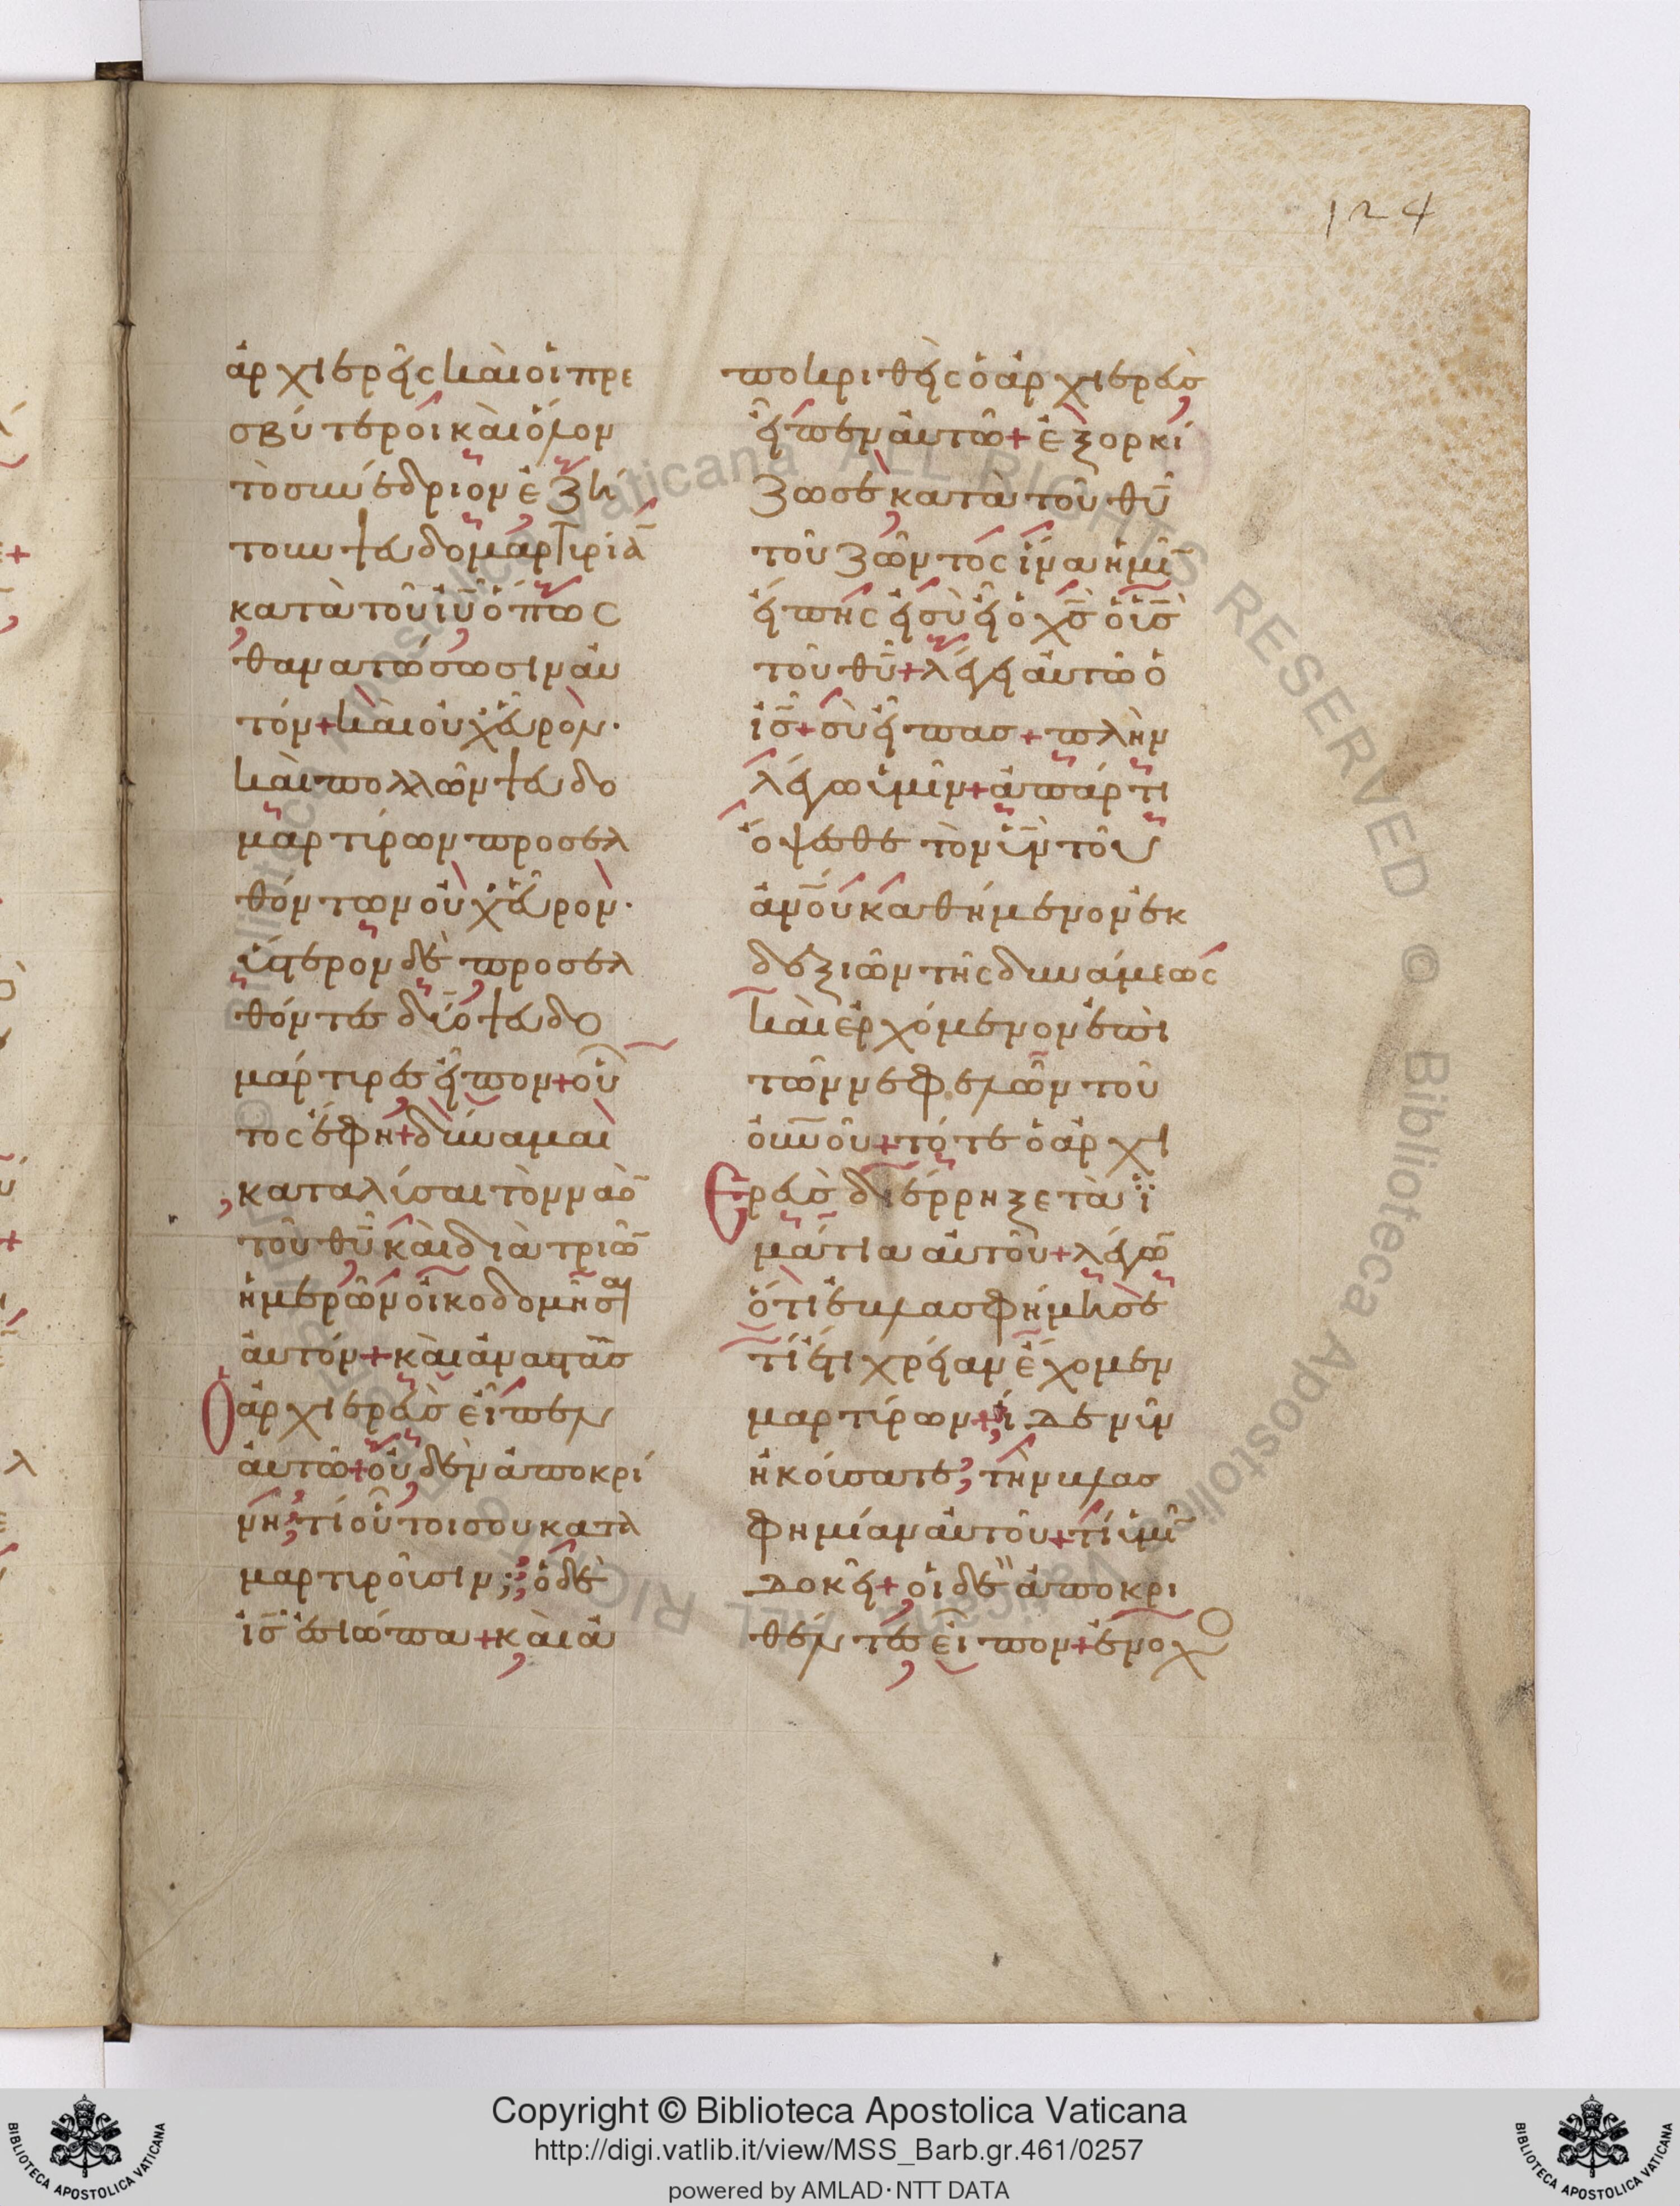 124
ἀρχιερεῖς καὶ οἱ πρε
σβύτεροι καὶ ὅλον
τὸ συνέδριον ἐζή
τουν ψευδομαρτυρίαν̅
κατὰ τοῦ ιυ̅ ὅπως
θανατώσωσιν αὐ
τόν + καὶ οὐχ εὗρον·
καὶ πολλῶν ψευδο
μαρτύρων προσελ
θόντων οὐχ εὗρον·
ὕστερον δὲ προσελ
θόντες δύο ψευδο
μάρτυρες εἶπον + οὗ
τος ἔφη + δύναμαι
καταλύσαι τὸν ναὸ̅
τοῦ θυ̅ καὶ διὰ τριῶ̅
ἡμερῶν οἰκοδομῆσαι
αὐτόν + καὶ ἀναστὰς
Ὁ ἀρχιερεὺς εἶπεν
αὐτῶ + οὐδὲν ἀποκρί
νη; τί οὗτοι σου κατα
μαρτυροῦσιν; ὁ δὲ
ις̅ ἐσιώπα + καὶ ἀ
ποκριθεὶς ὁ ἀρχιερεὺς
εἶπεν αὐτῶ + ἐξορκί
ζω σε κατὰ τοῦ θυ̅
τοῦ ζῶντος ἵνα ἡμῖ̅
εἴπης εἰ σὺ εἶ ὁ χς̅ ὁ υἱς̅
τοῦ θυ̅ + λέγει αὐτῶ ὁ
ις̅ + σὺ εἶπας + πλὴν
λέγω ὑμῖν + ἀπάρτι
ὄψεσθε τὸν υἱν̅ τοῦ
ἀνου̅ καθήμενον ἐκ
δεξιῶν τῆς δυνάμεως
καὶ ἐρχόμενον ἐπὶ
τῶν νεφελῶν τοῦ
οὐνου̅ + τότε ὁ ἀρχι
Ερεὺς διέρρηξε τὰ ἱ
μάτια αὐτοῦ + λέγω̅
ὅτι ἐβλασφήμησε
τί ἔτι χρείαν ἔχομεν
μαρτύρων + ἴδε νῦν
ἠκούσατε; τὴν βλασ
φημίαν αὐτοῦ + τί ὑμῖ̅
δοκεῖ + οἱ δὲ ἀποκρι
θέντες εἶπον + ἔνοχο
Copyright © Biblioteca Apostolica Vaticana
http://digi.vatlib.it/view/MSS_Barb.gr.461/0257
powered by AMLAD·NTT DATA
BIBLIOTECA APOSTOLICA VATICANA
BIBLIOTECA APOSTOLICA VATICANA
© Biblioteca Apostolica Vaticana ALL RIGHTS RESERVED © Biblioteca Apostolica Vaticana ALL RIGHTS RESERVED